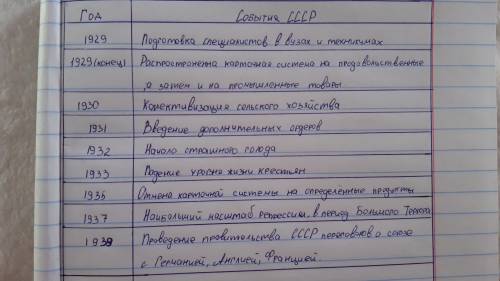 Год События СССР
1929 Подготовка специалистов в вузах и техникумах
1929(конец) Распространена карточная система на продовольственные
,а затем и на промышленные товары
1930 Колективизация сельского хозяйства
1931 Введение дополнительных ордеров
1932 Начало страшного голода
1933 Падение уровня жизни крестьян
1935 Отмена карточной системы на определённые продукты
1937 Наибольший масштаб репрессии, в период Большого Террора
1939 Проведение правительства СССР переговоров о союзе
с Германией, Англией, Францией.